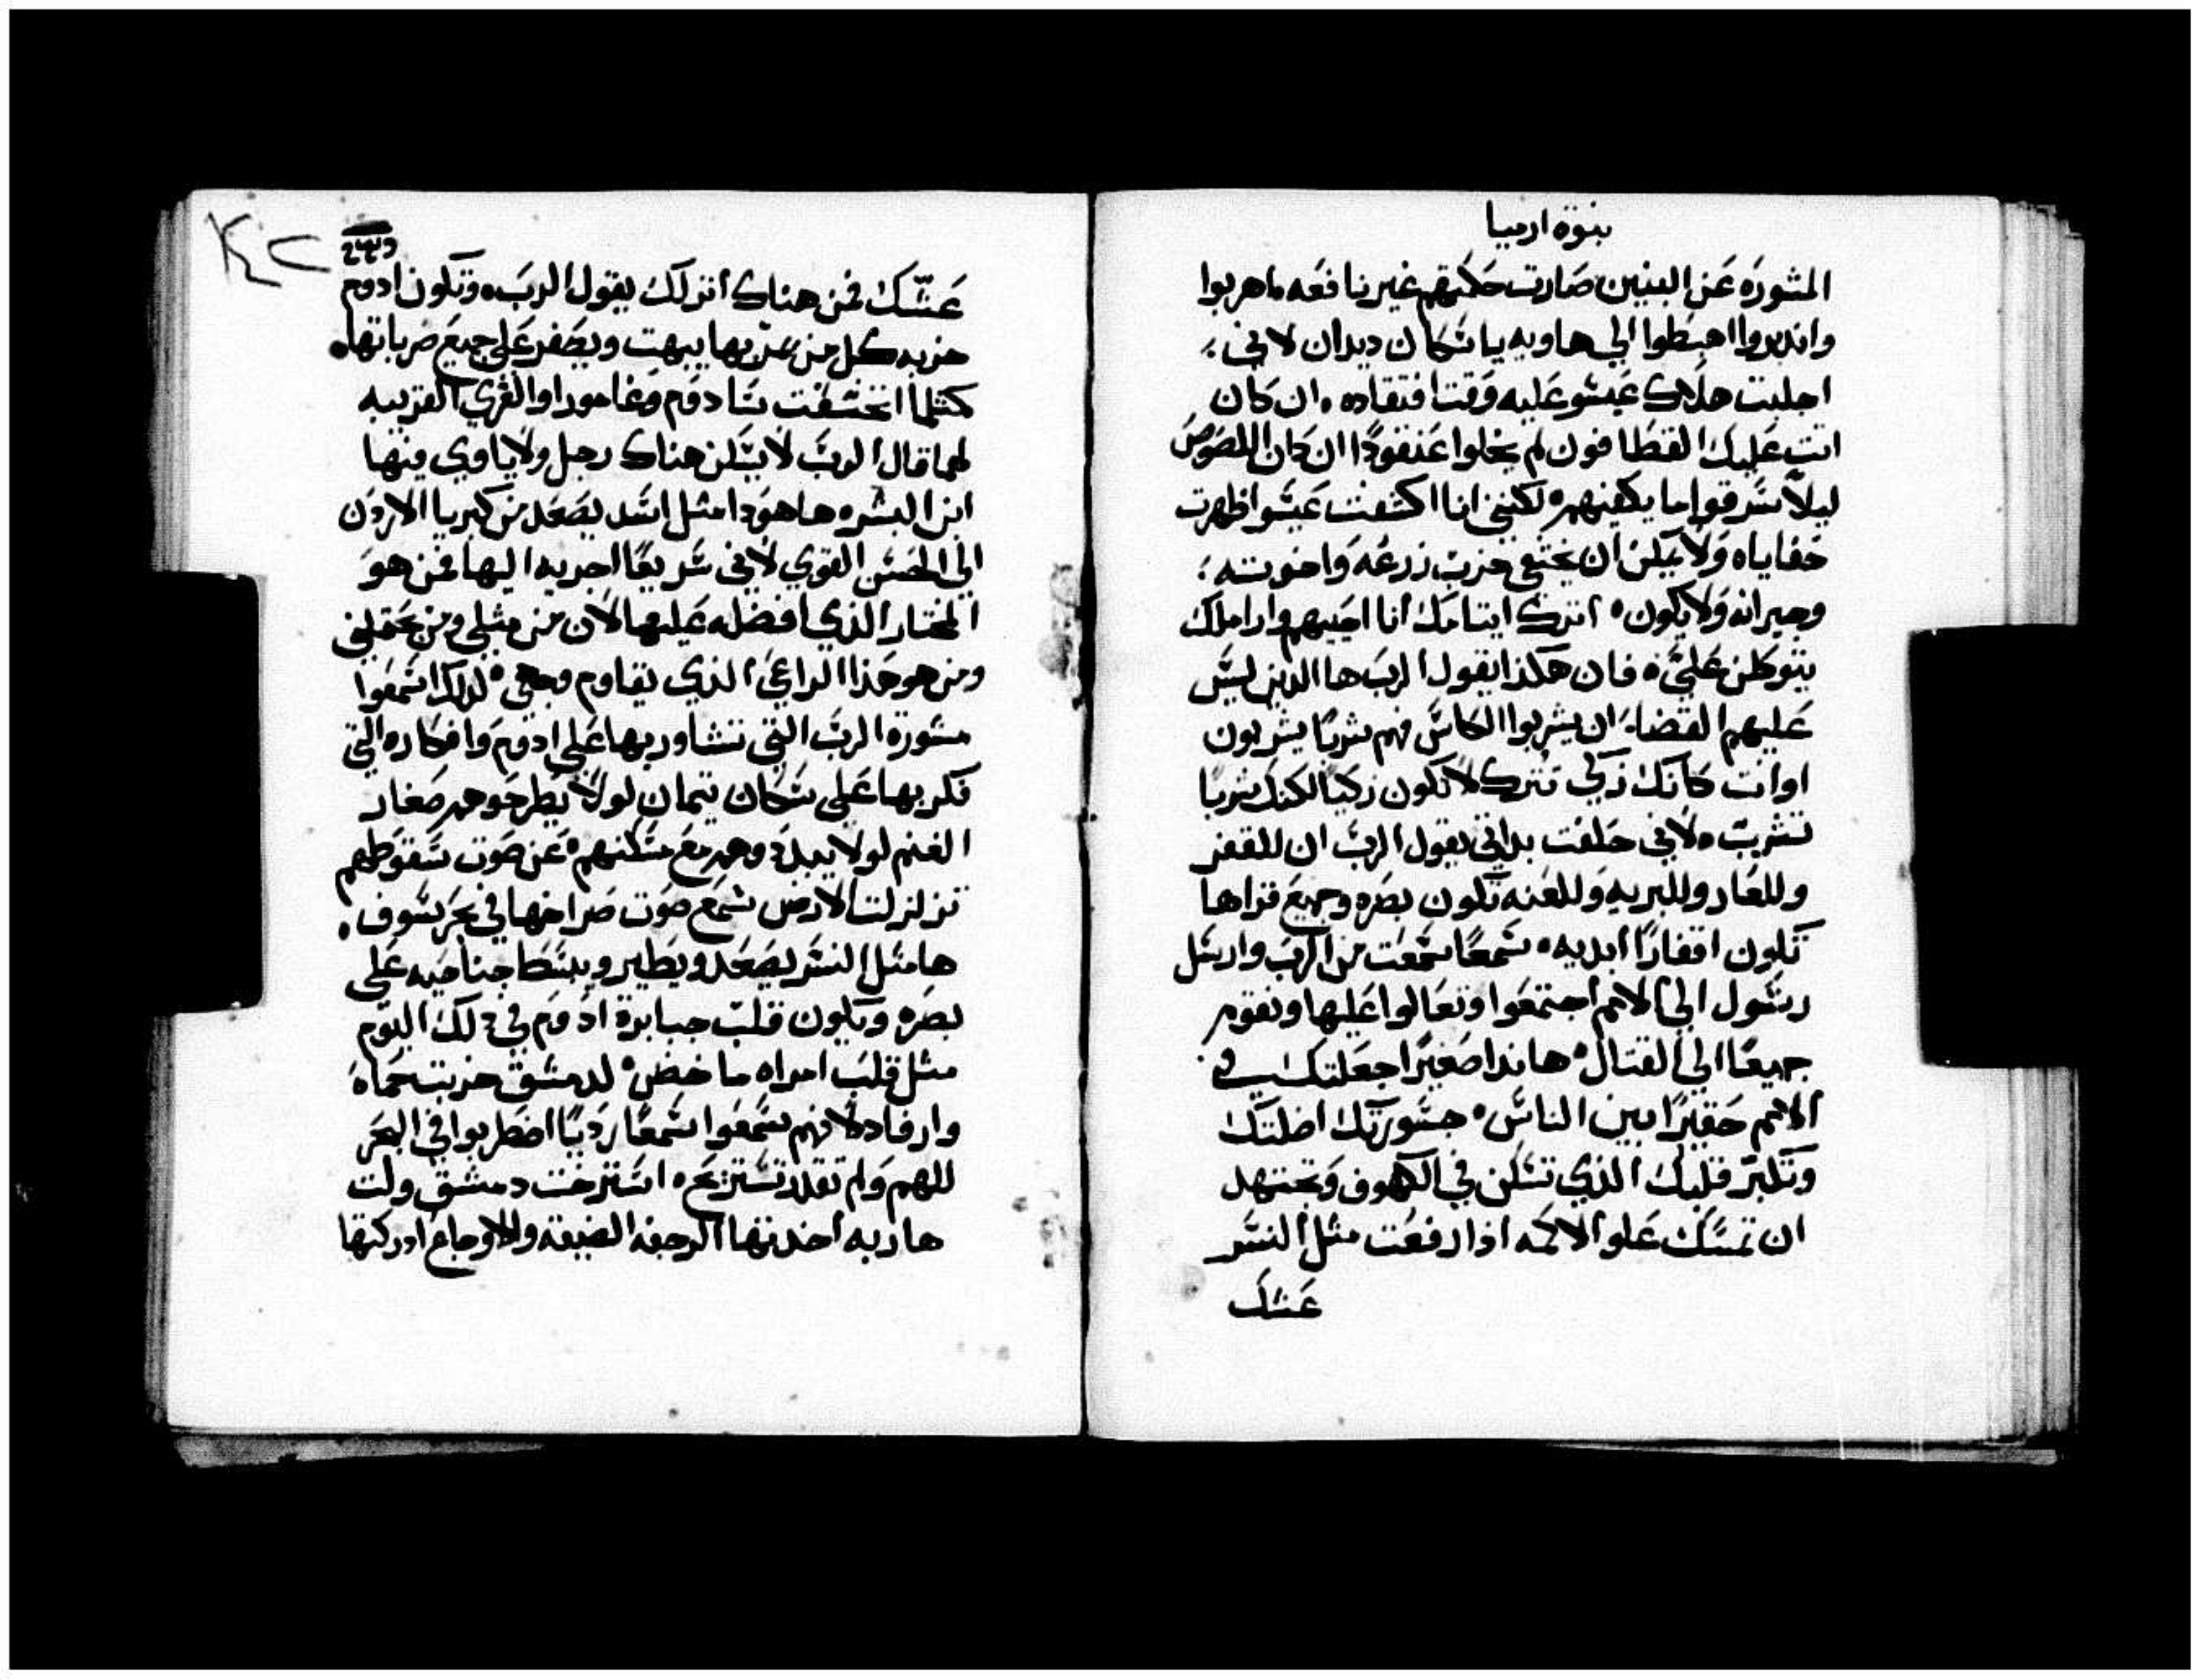 نبوة ارميا
المشورَه عَن البنين صَارت حَكمتهم غير نافعَه ماهربوا
واندبروا اهبَطوا الي هاويه يا سُكان ديدان لاني
اجلبت هلاك عَيسُو عَليه وَقت افتقاده ان كان
اتت عَليك القطَافون لم يخلوا عَنقودًا ان كان اللصُوصُ
ليلاً سَرقوا ما يكفيهم لكنني انا اكشفت عَيسُو اظهرت
خفاياه وَلا يمكن ان يختفي خربَ زرعَه وَاخوته
وجيرانه وَلا يكون اترك ايتامك انا احييهم واراملك
يتوكلن عَليَّ فان هكذا يقول الربَ ها الذين ليسَ
عَليهم القضاء ان يشربوا الكاسَ فهم شربًا يشربون
اوانت كانك زكي تترك لا تكون زكيًا لكنك شربًا
تشربَ لاني حَلفت بذاتي يقول الربَ ان للقفر
وللعَار وللبريه وَللعنه تكون بصَره وجميعَ قراها
تكون اقفارًا ابديه سَمعًا سَمعَت من الربَ وارسَل
رسَول الي الامم اجتمعَوا وتعَالوا عَليها ونقوم
جميعًا الي القتال هانذا صَغيرًا جعَلتك في
الامم حَقيرًا بين الناسَ جسَورتك اضلتك
وتكبرَ قلبك الذي تسَكن في الكهوف وَتجتهد
ان تمسَك عَلو الاكمَه اذا رفعَت مثل النسَر
عَشك
عَشّك فمن هناك انزلك يقول الربَ وتكون ادوم
خربه كل من يمرّ بها يبهت ويصَفر عَلي جميعَ ضرباتها
كمثلما انخسَفت سَادوَم وَغاموَرا والقري القريبه
لهما قال الربَ لا يسَكن هناك رجل ولا ياوي فيها
ابن البشره ها هوَذا مثل اسَد يصَعَد من كبريا الاردَن
الي الحَسَن القوي لاني سَريعًا اجريه اليها فمن هوَ
المختار الذي افضله عَليها لان من مثلي ومن يحَتملني
ومن هو هَذا الراعَي الذي يقاوم وجهي لذلك اسَمعَوا
مشورة الربَ التي تشاور بها عَلي ادوَم وَافكاره التي
فكر بها عَلي سَكان تيمان لولا يطرحَوهم صَغار
الغنم لولا يبدَدوهم مَع مسَكنهم عَن صَوت سَقوطهم
تزلزلت الارض سَمعَ صَوت صَراخها في بحَر سَوف
ها مثل النسَر يصَعَد ويطَير ويبسَط جناحَيه عَلي
بصَره وَيكون قلبَ جبابرة ادوَم في ذلك اليوَم
مثل قلبَ امراه ماخض لدمشق خزيت حَماه
وارفاد لانهم سَمعَوا سَمعًا رَديًا اضطَربوا في البحَر
للهم وَلم تقدر تسَتريحَ استرخت دمشق ولت
هاربه اخذتها الرجفه الضيقه والاوجاعَ ادركتها